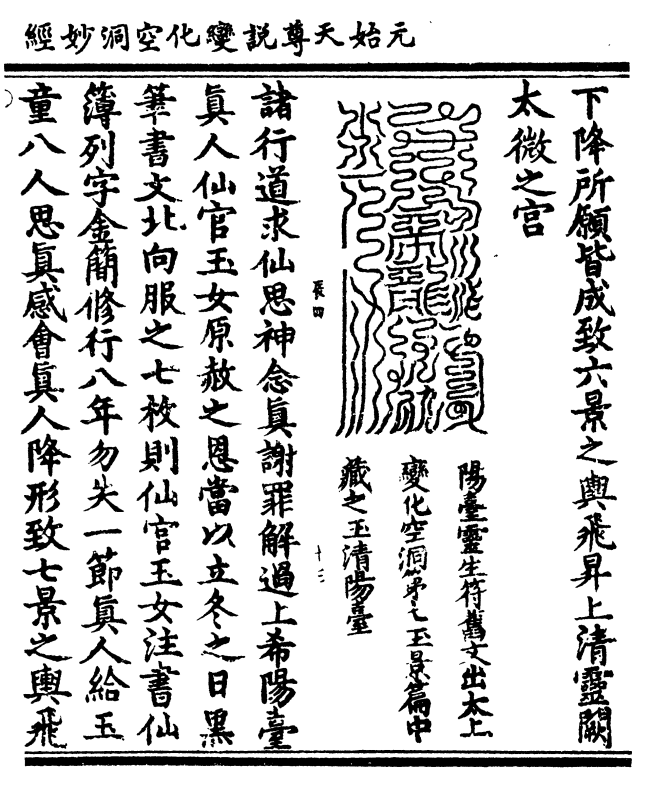 元始天尊説變化空洞妙經
下降所願皆成致六景之輿飛昇上清靈闕
太微之宮
陽臺靈生符舊文出太上
變化空洞第七玉景篇中
藏之玉清陽臺
辰四
十三
諸行道求仙思神念眞謝罪解過上希陽臺
眞人仙官玉女原赦之恩當以立冬之日黑
筆書文北向服之七枚則仙官玉女注書仙
簿列字金簡修行八年勿失一節眞人給玉
童八人思眞感會眞人降形致七景之輿飛